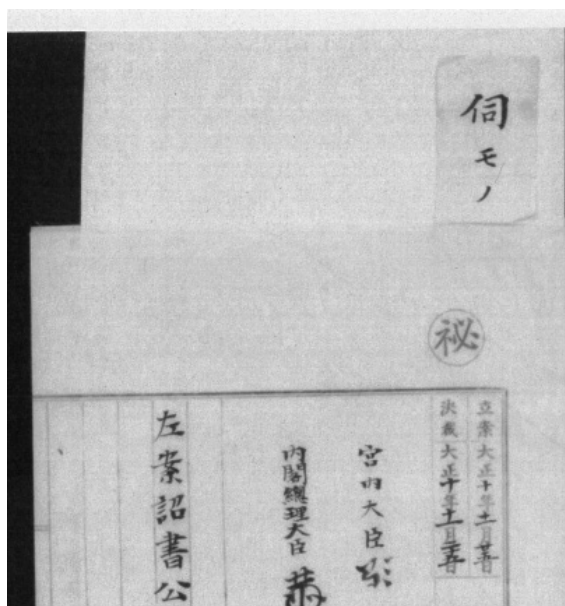 伺モノ
秘
立案大正十年十一月廿五日
決裁大正十年十一月廿五日
宮内大臣
内閣總理大臣
左案詔書公